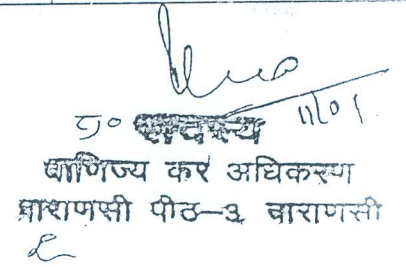 11/01
वाणिज्य कर अधिकरण
वाराणसी पीठ-3 वाराणसी